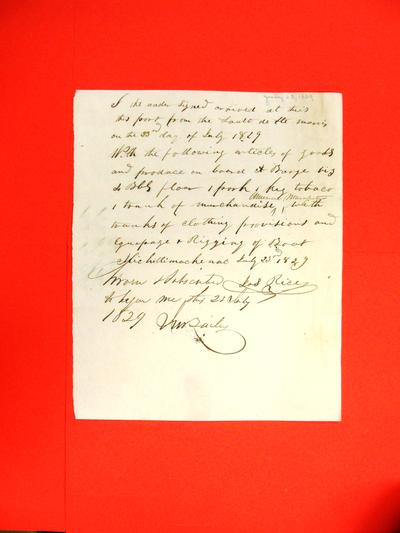 July 23, 1829
I the under signed arrived at this
this port from the Sault de Ste maries
on the 23rd day of July 1829
With the following articles of goods
and produce on board A Barge viz
Bbls flour 1 pork 1 keg tobacco
1 trunk of merchandise, with
trunks of clothing provisions and
Equipage & Rigging of Boat
Michilimackinac July 23d 1829
Sworn & Subscribed
Rice
before me this 23 July
1829